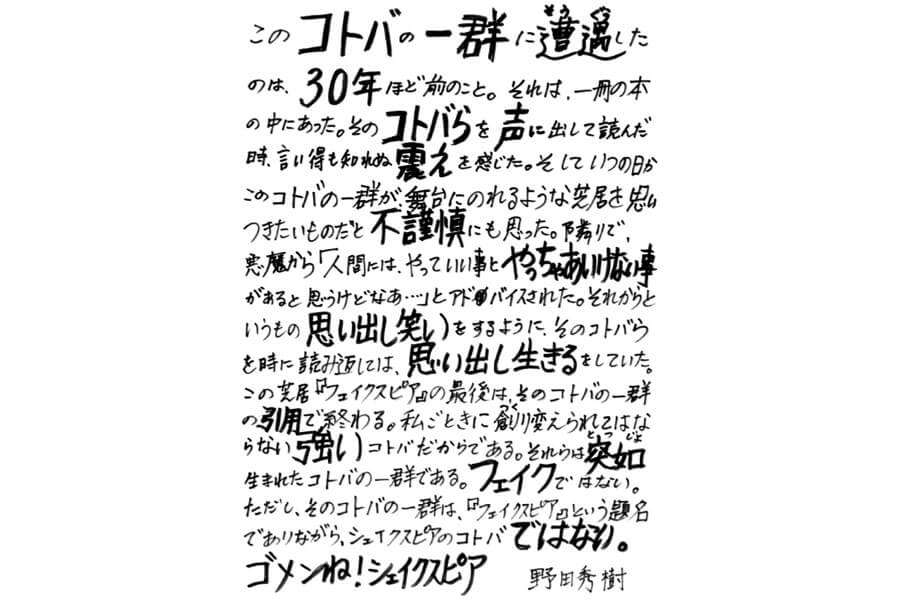 このコトバの一群に遭遇した
のは、30年ほど前のこと。それは、一冊の本
の中にあった。そのコトバらを声に出して読んだ
時、言い得も知れぬ震えを感じた。そしていつの日か
このコトバの一群が、舞台にのれるような芝居を思い
つきたいものだと不謹慎にも思った。隣りで、
悪魔から「人間には、やっていい事とやっちゃあいけない事
があると思うけどなあ…」とアドバイスされた。それからと
いうもの思い出し笑いをするように、そのコトバら
を時に読み返しては、思い出し生きるをしていた。
この芝居『フェイクスピア』の最後は、そのコトバの一群
の引用で終わる。私ごときに創り変えられてはな
らない強いコトバだからである。それらは突如
生まれたコトバの一群である。フェイクではない。
ただし、そのコトバの一群は、『フェイクスピア』という題名
でありながら、シェイクスピアのコトバではない。
ゴメンね！シェイクスピア 野田秀樹